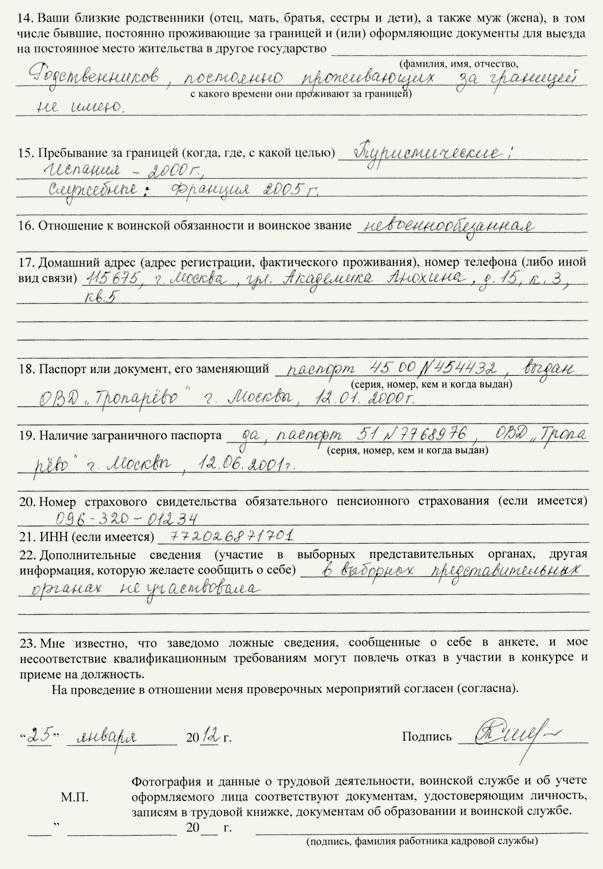 14. Ваши близкие родственники (отец, мать, братья, сестры и дети), а также муж (жена), в том
числе бывшие, постоянно проживающие за границей и (или) оформляющие документы для выезда
на постоянное место жительства в другое государство
(фамилия, имя, отчество,
Родственников, постоянно проживающих за границей
с какого времени они проживают за границей)
не имею.
15. Пребывание за границей (когда, где, с какой целью) Туристические:
Испания - 2000 г,
Служебные: Франция 2005 г.
16. Отношение к воинской обязанности и воинское звание невоеннообязанная
17. Домашний адрес (адрес регистрации, фактического проживания), номер телефона (либо иной
вид связи) 115675, г. Москва, ул. Академика Анохина, д. 15, к. 3,
кв. 5
18. Паспорт или документ, его заменяющий паспорт 45 00 №454432, выдан
(серия, номер, кем и когда выдан)
ОВД „Тропарёво" г. Москвы, 12.01.2000г.
19. Наличие заграничного паспорта да, паспорт 51 №7768976, ОВД „Тропа
(серия, номер, кем и когда выдан)
рёво" г. Москвы, 12.06.2001г.
20. Номер страхового свидетельства обязательного пенсионного страхования (если имеется)
096-320-01234
21. ИНН (если имеется) 772026871701
22. Дополнительные сведения (участие в выборных представительных органах, другая
информация, которую желаете сообщить о себе) в выборных представительных
органах не участвовала
23. Мне известно, что заведомо ложные сведения, сообщенные о себе в анкете, и мое
несоответствие квалификационным требованиям могут повлечь отказ в участии в конкурсе и
приеме на должность.
На проведение в отношении меня проверочных мероприятий согласен (согласна).
“25” января 2012 г. Подпись
Фотография и данные о трудовой деятельности, воинской службе и об учете
М.П. оформляемого лица соответствуют документам, удостоверяющим личность,
записям в трудовой книжке, документам об образовании и воинской службе.
” 20 г.
(подпись, фамилия работника кадровой службы)